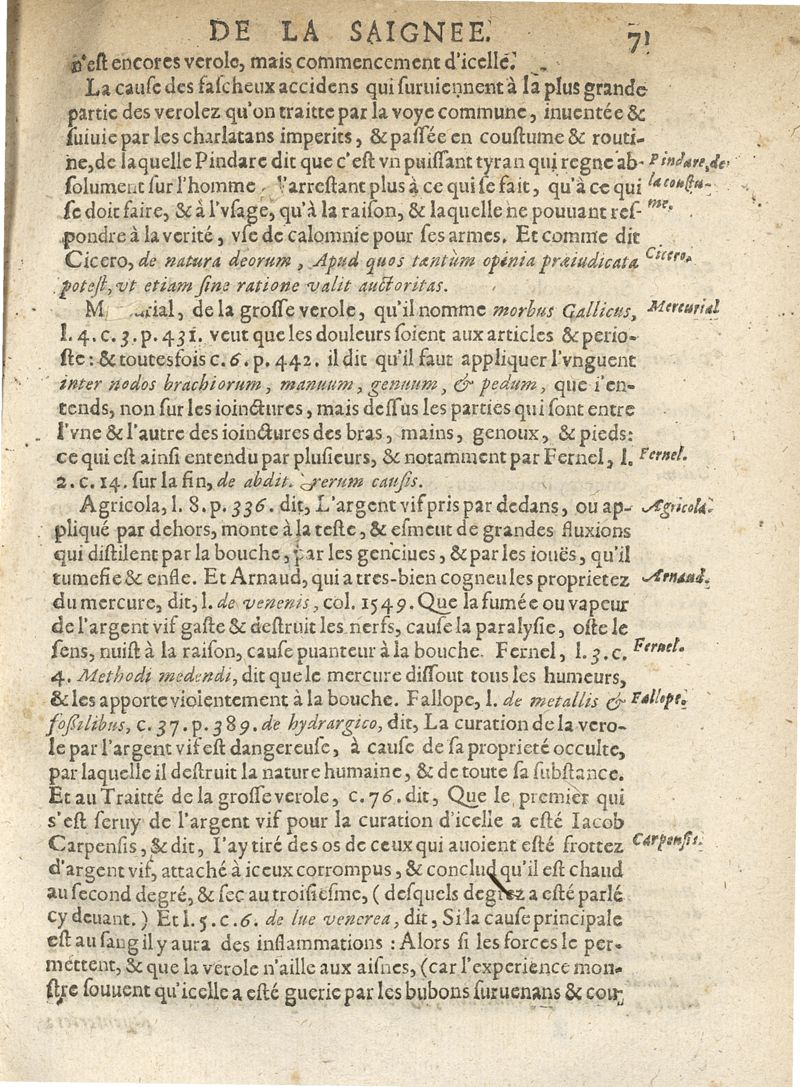 DE LA SAIGNEE. 71
n'est encores verole, mais commencement d'icelle.
La cause des fascheux accidens qui suruiennent à la plus grande
partie des verolez qu'on traitte par la voye commune, inuentée &
suiuie par les charlatans imperits, & passée en coustume & routi-
ne, de laquelle Pindare dit que c'est vn puissant tyran qui regne ab- Pindare, de
solument sur l'homme, s'arrestant plus à ce qui se fait, qu'à ce qui la coustu-
se doit faire, & à l'vsage, qu'à la raison, & laquelle ne pouuant res- me.
pondre à la verité, vse de calomnie pour ses armes. Et comme dit
Cicero, de natura deorum, Apud quos tantùm opinia præiudicata Cicero.
potest, vt etiam sine ratione valit auctoritas.
de la grosse verole, qu'il nomme morbus Gallicus, Mercurial
l. 4. c. 3. p. 431. veut que les douleurs soient aux articles & perio-
ste: & toutesfois c. 6. p. 442. il dit qu'il faut appliquer l'vnguent
inter nodos brachiorum, manuum, genuum, & pedum, que i'en-
tends, non sur les ioinctures, mais dessus les parties qui sont entre
l'vne & l'autre des ioinctures des bras, mains, genoux, & pieds:
ce qui est ainsi entendu par plusieurs, & notamment par Fernel, l. Fernel.
2. c. 14. sur la fin, de abdit. rerum causis.
Agricola, l. 8. p. 336. dit, L'argent vif pris par dedans, ou ap- Agricola.
pliqué par dehors, monte à la teste, & esmeut de grandes fluxions
qui distilent par la bouche, par les genciues, & par les iouës, qu'il
tumefie & enfle. Et Arnaud, qui a tres-bien cogneu les proprietez Arnaud.
du mercure, dit, l. de venenis, col. 1549. Que la fumée ou vapeur
de l'argent vif gaste & destruit les nerfs, cause la paralysie, oste le
sens, nuist à la raison, cause puanteur à la bouche. Fernel, l. 3. c. Fernel.
4. Methodi medendi, dit que le mercure dissout tous les humeurs,
& les apporte violentement à la bouche. Fallope, l. de metallis & Fallope.
fossilibus, c. 37. p. 389. de hydrargico, dit, La curation de la vero-
le par l'argent vif est dangereuse, à cause de sa proprieté occulte,
par laquelle il destruit la nature humaine, & de toute sa substance.
Et au Traitté de la grosse verole, c. 76. dit, Que le premier qui
s'est seruy de l'argent vif pour la curation d'icelle a esté Iacob
Carpensis, & dit, I'ay tiré des os de ceux qui auoient esté frottez Carpensis.
d'argent vif, attaché à iceux corrompus, & conclud qu'il est chaud
au second degré, & sec au troisiesme, (desquels degrez a esté parlé
cy deuant.) Et l. 5. c. 6. de lue venerea, dit, Si la cause principale
est au sang il y aura des inflammations : Alors si les forces le per-
mettent, & que la verole n'aille aux aisnes, (car l'experience mon-
stre souuent qu'icelle a esté guerie par les bubons suruenans & cou-